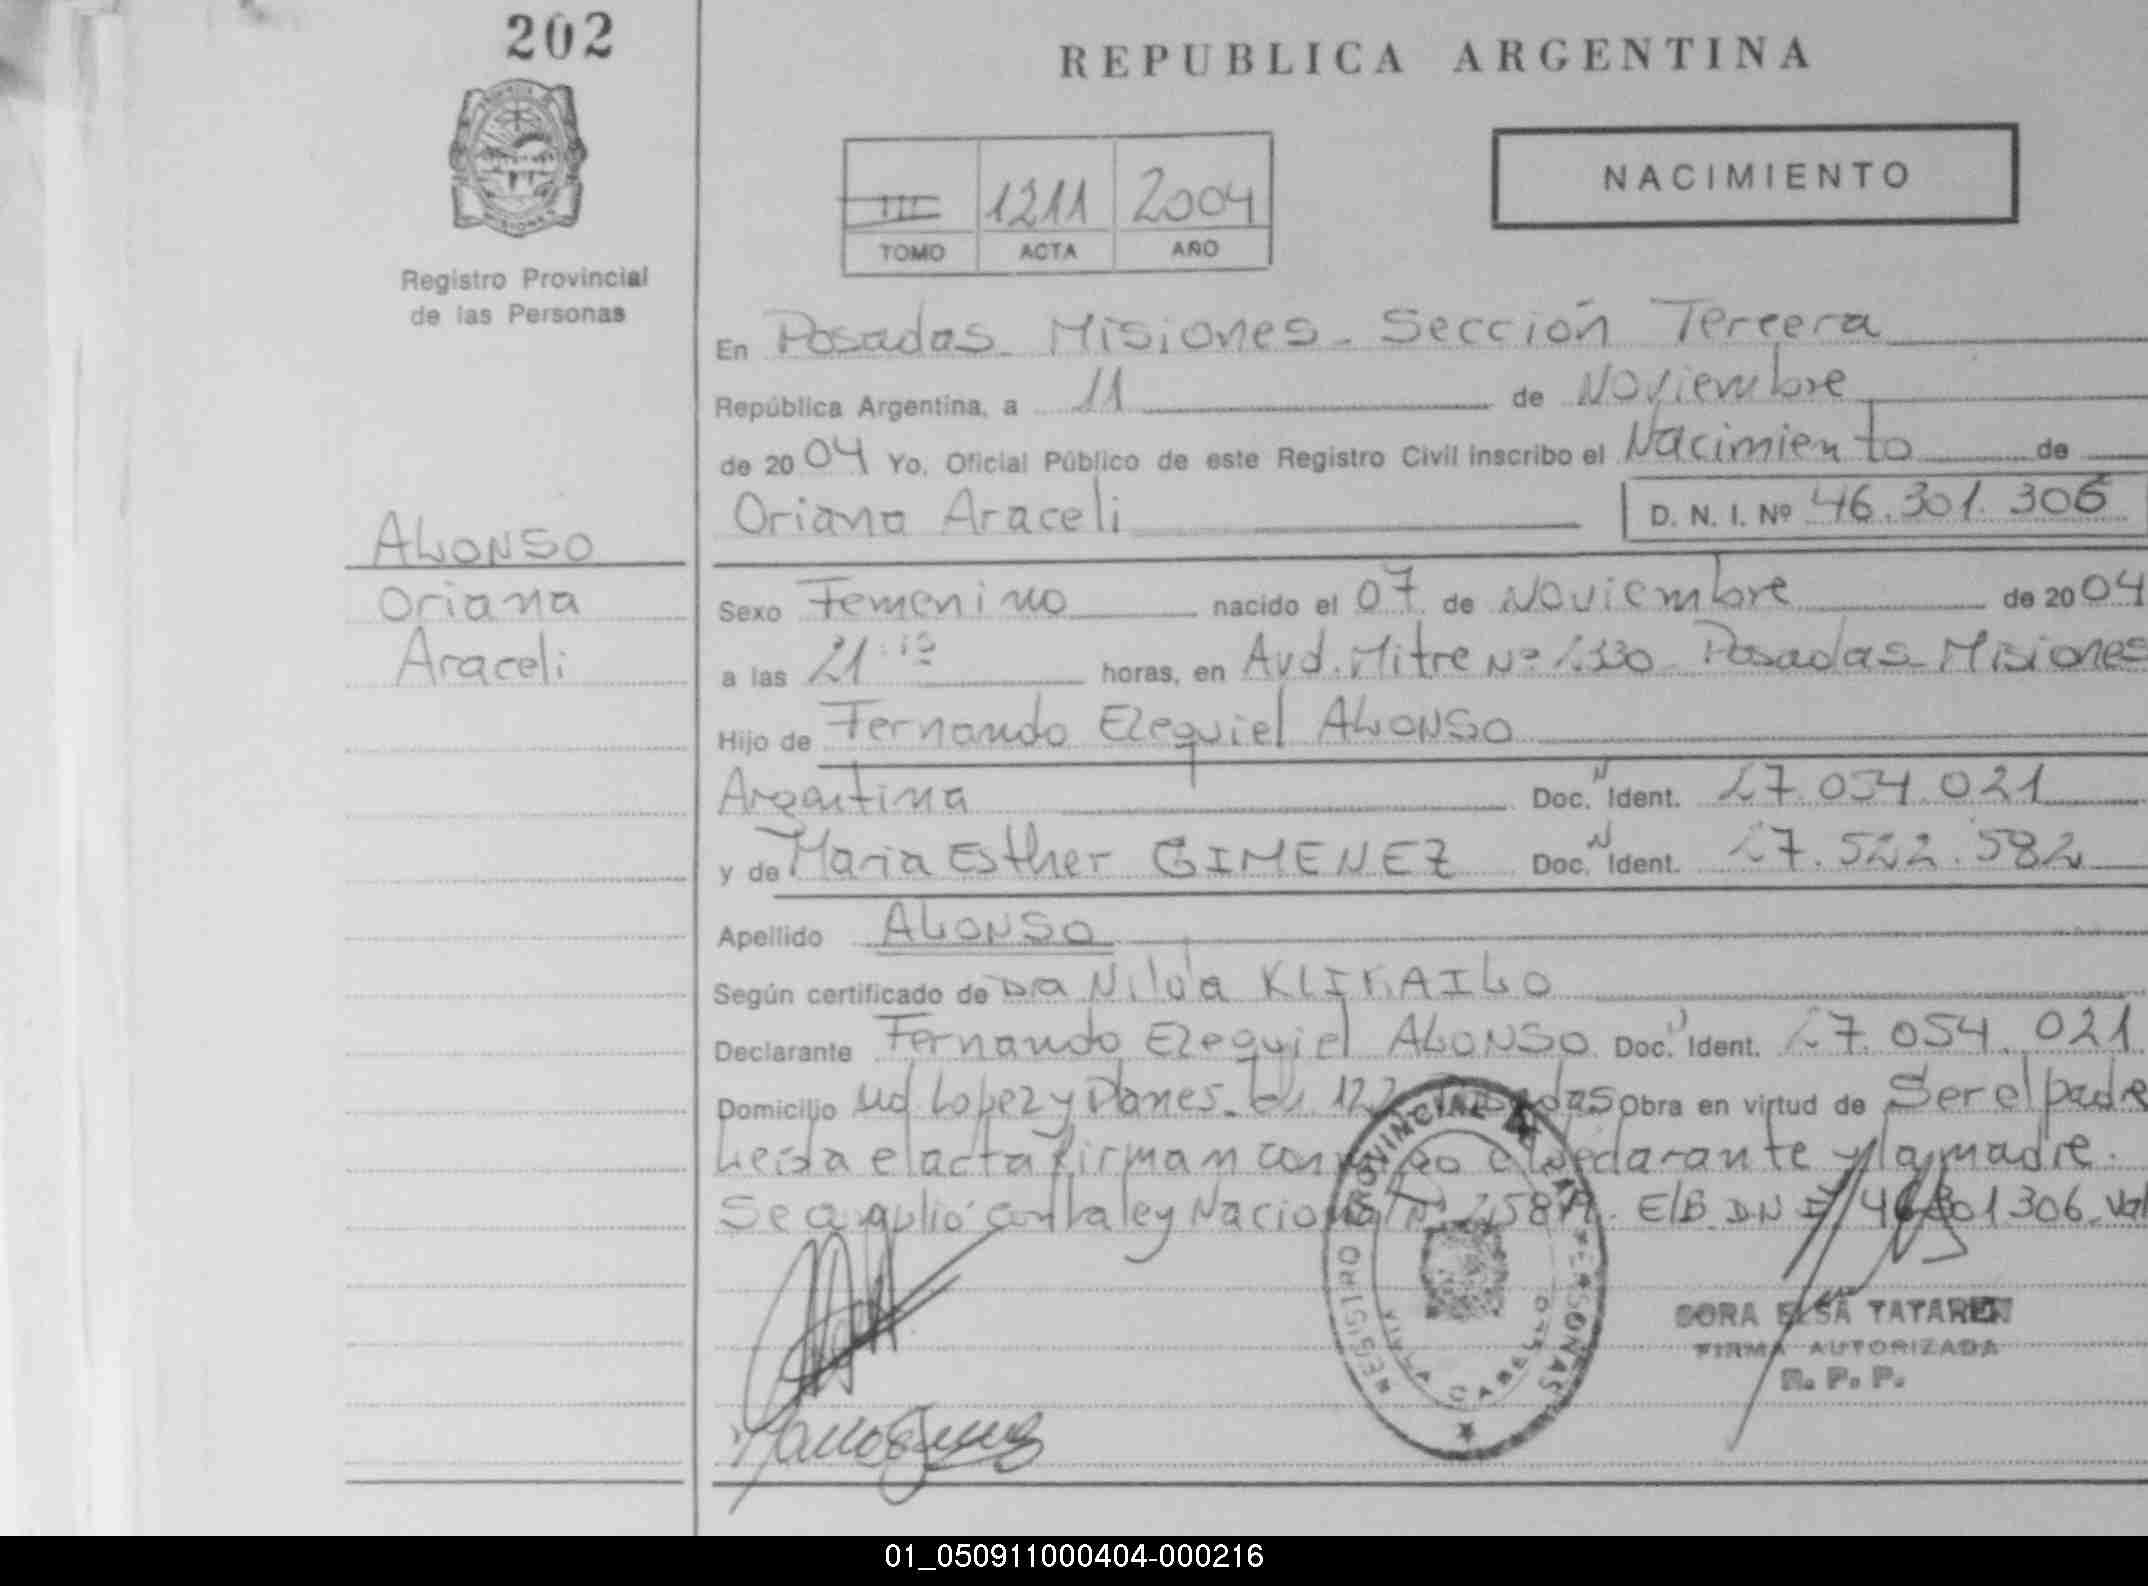 202
REPUBLICA ARGENTINA
NACIMIENTO
III 1211 2004
TOMO ACTA AÑO
Registro Provincial
de las Personas
En Posadas - Misiones - Sección Tercera
República Argentina, a 11 de Noviembre
de 2004 Yo, Oficial Público de este Registro Civil inscribo el Nacimiento de
Oriana Araceli D. N. I. Nº 46.301.306
ALONSO
Oriana
Araceli
Sexo Femenino nacido el 07 de Noviembre de 2004
a las 21 horas, en Avd. Mitre Nº Posadas - Misiones
Hijo de Fernando Ezequiel ALONSO
Argentina Doc. N Ident. 27.054.021
y de Maria Esther GIMENEZ Doc. N Ident. 27.522.582
Apellido ALONSO
Según certificado de Dra Nilda
Declarante Fernando Ezequiel ALONSO Doc. Ident. 27.054.021
Domicilio Lopez y Planes - Obra en virtud de Ser el padre
Leida el acta firman el declarante y la madre.
Se la ley Nacional DNI 46301306
REGISTRO PROVINCIAL
DORA ELSA TATAREN
FIRMA AUTORIZADA
R. P. P.
01_050911000404-000216